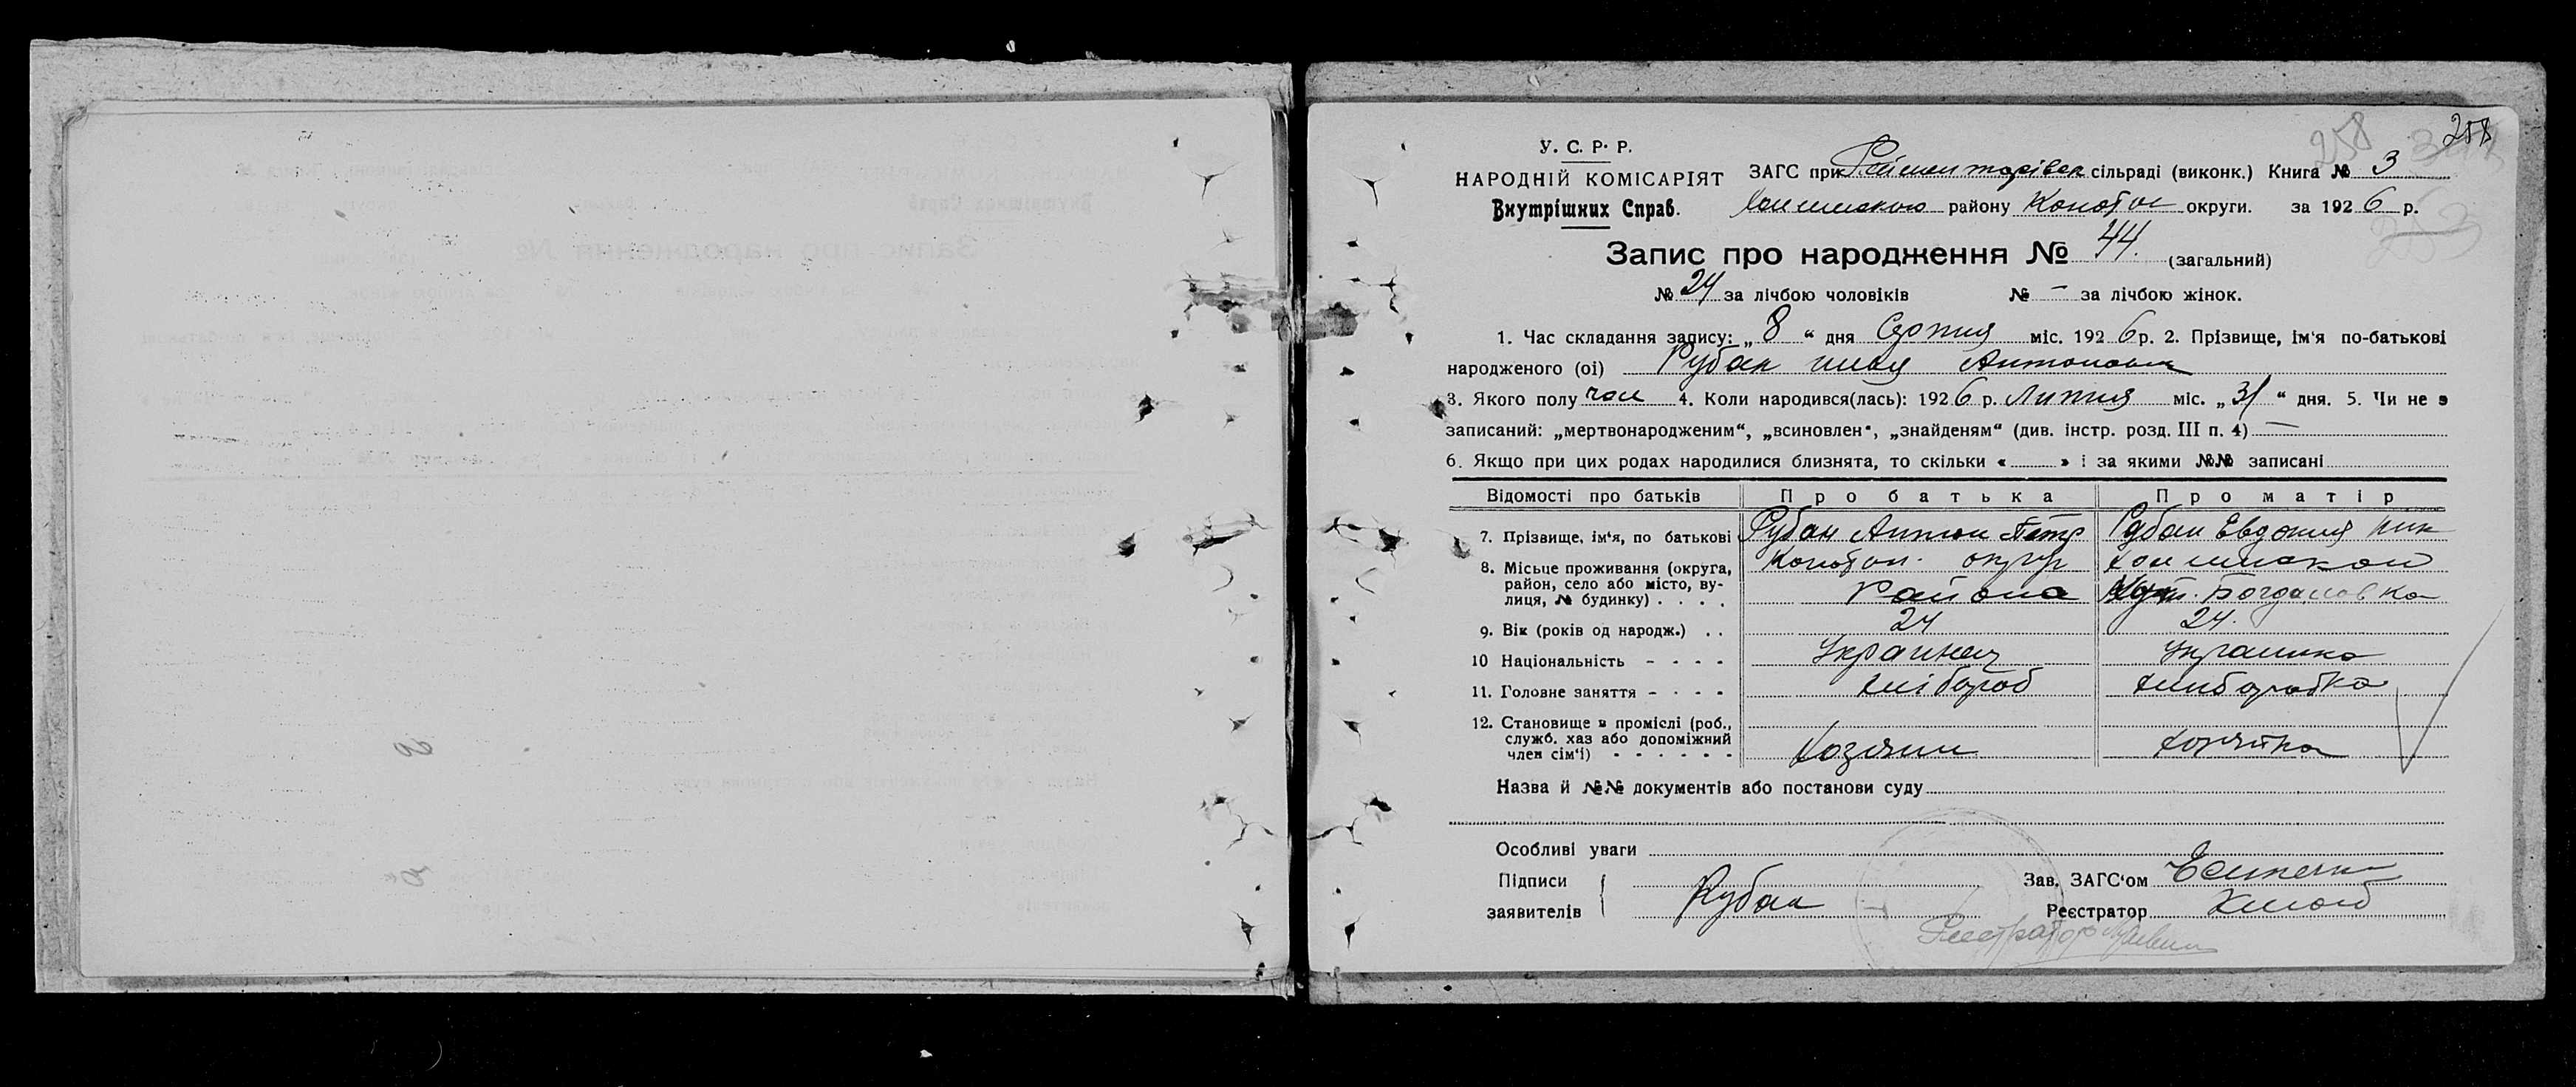 258 258
У. С. Р. Р.
НАРОДНІЙ КОМІСАРІЯТ
Внутрішних Справ.
ЗАГС при сільраді (виконк.) Книга № 3
району Конотоп округи. за 1926 р.
Запис про народження № 44. (загальний)
№ 24 за лічбою чоловіків № — за лічбою жінок.
1. Час складання запису: „ 8 “ дня Серпня міс. 1926 р. 2. Прізвище, ім‘я по-батькові
народженого (оі) Рубан Илья Антонович
3. Якого полу чол 4. Коли народився(лась): 1926 р. Липня міс. „ 31 “ дня. 5. Чи не э
записаний: „мертвонародженим“, „всиновлен“, „знайденям“ (див. інстр. розд. III п. 4) —
6. Якщо при цих родах народилися близнята, то скільки « » і за якими №№ записані
Відомості про батьків Про батька Про матір
7. Прізвище, ім‘я, по батькові Рубан Антон Петр Рубан Евдокия Ник
8. Місьце проживання (округа, район, село або місто, вулиця, № будинку) . . . . Конотоп. округ
Района Хут. Богдановка
9. Вік (років од народж.) . . 24 24.
10 Національність - - - - Украинец Украинка
11. Головне заняття - - - - хлібороб хлиборобка
12. Становище в проміслі (роб.,
служб. хаз або допоміжний
член сім‘ї) - - - - - - Хозяин хозяйка
Назва й №№ документів або постанови суду
Особливі уваги
Підписи
заявителів Рубан
Зав. ЗАГС‘ом
Реєстратор